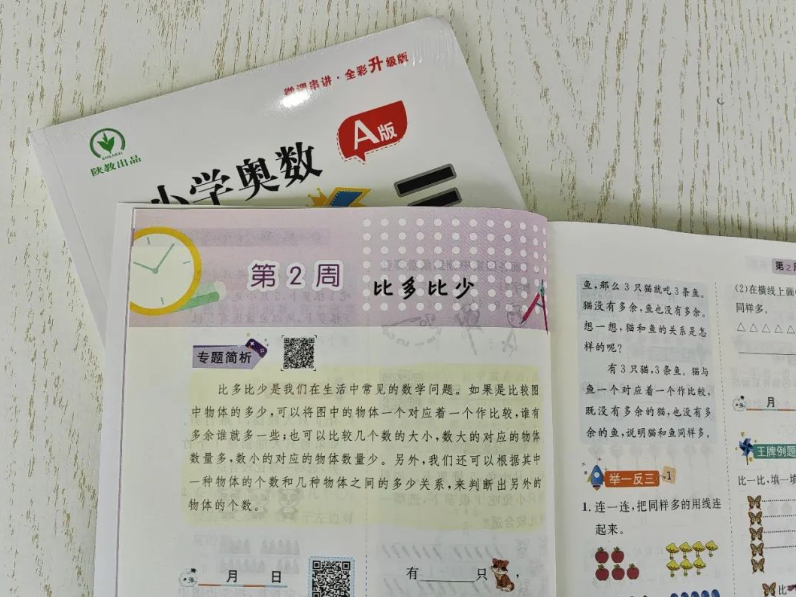 微课串讲·全彩升级版
A版
陕教出品
小学奥数
第2周
比多比少
专题简析
比多比少是我们在生活中常见的数学问题。如果是比较图
中物体的多少,可以将图中的物体一个对应着一个作比较,谁有
多余谁就多一些;也可以比较几个数的大小,数大的对应的物体
数量多,数小的对应的物体数量少。另外,我们还可以根据其中
一种物体的个数和几种物体之间的多少关系,来判断出另外的
物体的个数。
月 日
有 只 ,
鱼,那么3只猫就吃3条鱼。
猫没有多余,鱼也没有多余。
想一想,猫和鱼的关系是怎
样的呢?
有3只猫,3条鱼。猫与
鱼一个对应着一个作比较,
既没有多余的猫,也没有多
余的鱼,说明猫和鱼同样多。
举一反三 1
1. 连一连,把同样多的用线连
起来。
第2
(2)在横线上画
同样多。
△△△△△
月
王牌例题
比一比,填一填
比